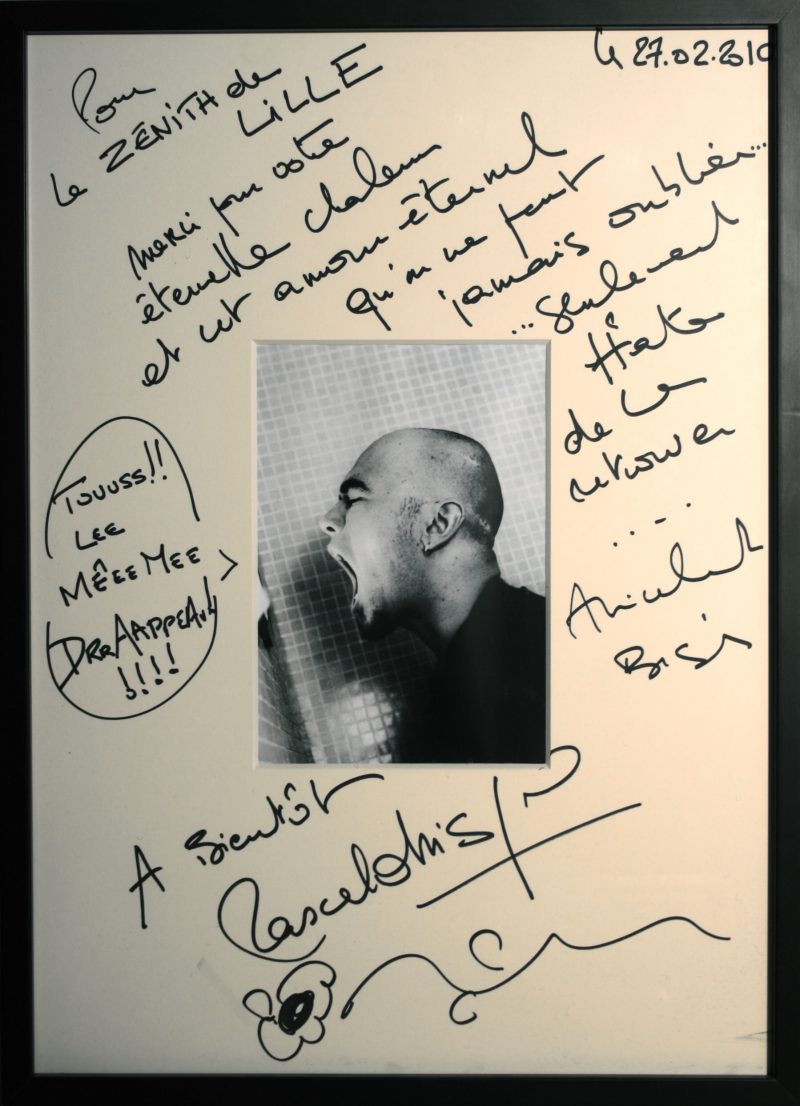 Le 27.02.2010
Pour
Le ZÉNITH de
LILLE
merci pour votre
éternelle chaleur
et cet amour éternel
qu'on ne peut
jamais oublier...
...seulement
Hâte
de le
retrouver
.....
Amicalement
BISES
TOUUSS!!
LEE
MÊEEMEE
DRAAAPPEAUU
!!!!
A Bientôt
Pascal Obispo